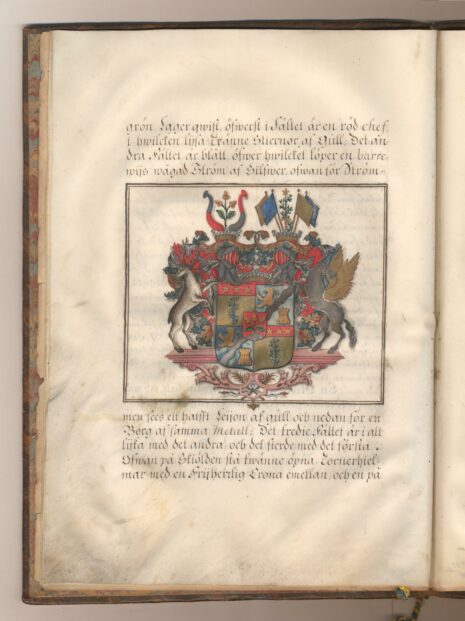 grön Lager qwist, öfwerst i Fältet är en röd chef,
i hwilcken lysa tränne Stiernor af Gull; Det an-
dra Fältet är blått, öfwer hwilcket löper en barre-
wijs wågad Ström af Silfwer, ofwan för Ström-
men sees ett halfft Leijon af gull och nedan för en
Borg af samma Metall; Det tredie Fältet är i alt
lijka med det andra, och det fierde med det första.
Ofwan på Skiölden stå twänne öpna Tornerhiel-
mar med en Frijherrlig Crona emellan, och en på